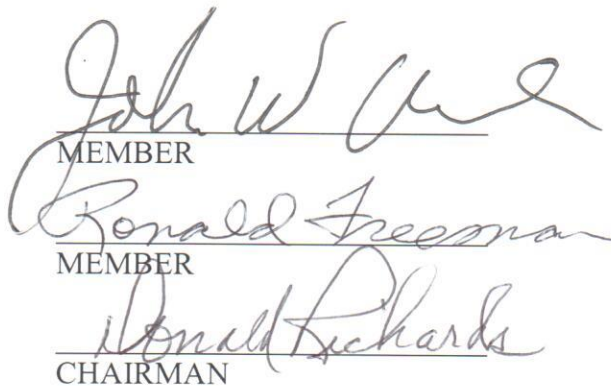 John W
MEMBER
Ronald Freeman
MEMBER
Donald Richards
CHAIRMAN